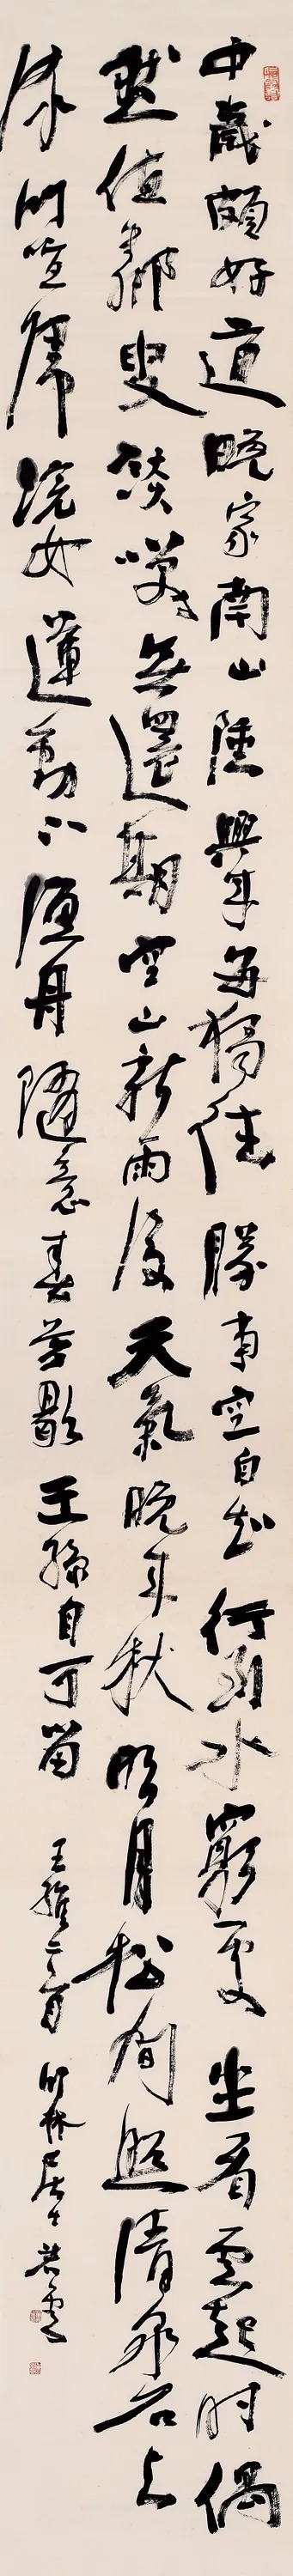 中歲頗好道晚家南山陲興來每獨往勝事空自知行到水窮處坐看雲起時偶
然值鄰叟談笑無還期空山新雨後天氣晚來秋明月松間照清泉石上
流竹喧歸浣女蓮動下漁舟隨意春芳歇王孫自可留 王維二首 竹林居士